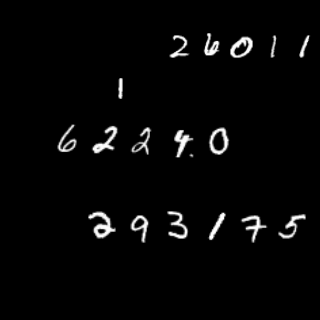 26011
1
62240
293175